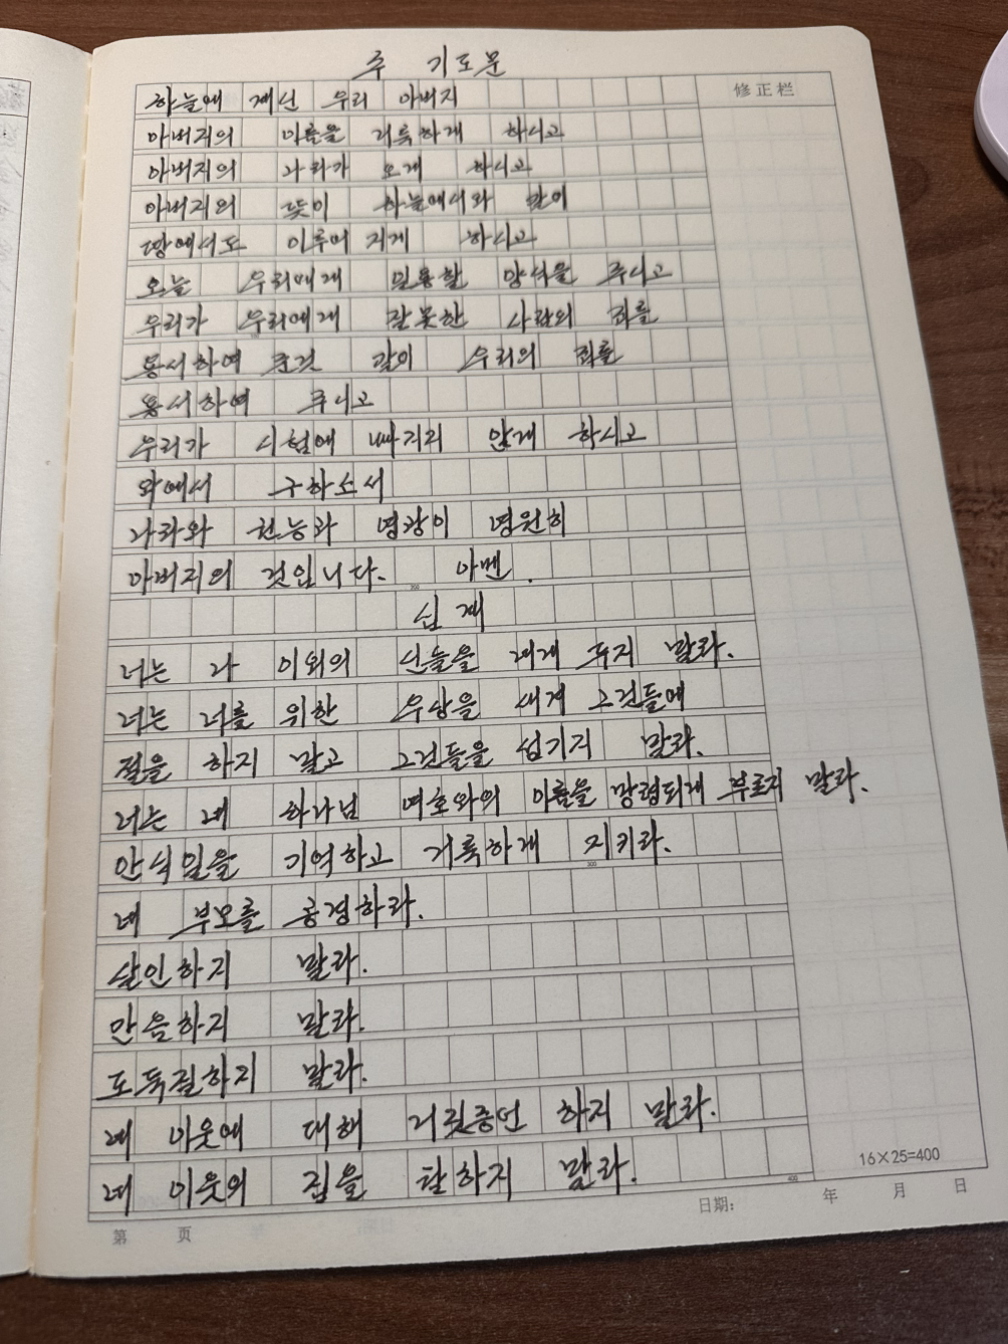 주 기도문
修正栏
하늘에 계신 우리 아버지
아버지의 이름을 거룩하게 하시고
아버지의 나라가 오게 하시고
아버지의 뜻이 하늘에서와 같이
땅에서도 이루어 지게 하시고
오늘 우리에게 일용할 양식을 주시고
우리가 우리에게 잘못한 사람의 죄를
용서하여 준것 같이 우리의 죄를
용서하여 주시고
우리가 시험에 빠지지 않게 하시고
악에서 구하소서
나라와 권능과 영광이 영원히
아버지의 것입니다. 아멘.
십계
너는 나 이외의 신들을 네게 두지 말라.
너는 너를 위한 우상을 새겨 그것들에
절을 하지 말고 그것들을 섬기지 말라.
너는 네 하나님 여호와의 이름을 망령되게 부르지 말라.
안식일을 기억하고 거룩하게 지키라.
300
네 부모를 공경하라.
살인하지 말라.
간음하지 말라.
도둑질하지 말라.
네 이웃에 대해 거짓증언 하지 말라.
네 이웃의 집을 탐하지 말라.
16×25=400
400
第 页 日期: 年 月 日